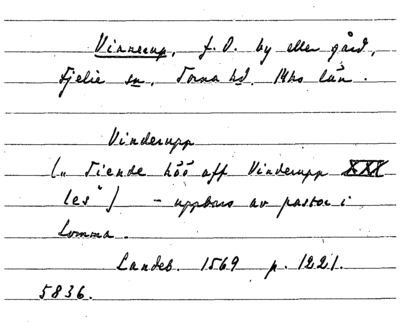 Vinnerup, f.D. by eller gård,
Fjelie sn, Torna hd. Mhs län.
Vinderupp
(„ Tiende höö aff Vinderupp XXX
les") - uppbars av pastor i
Lomma.
Landeb. 1569 p. 1221.
5836.